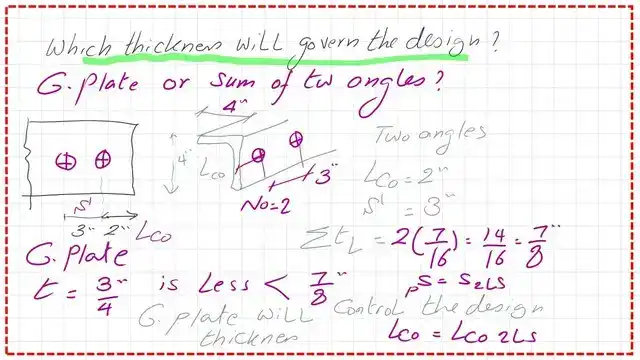 Which thickness will govern the design?
G. Plate or Sum of tw angles?
4"
4"
Lco
3"
No=2
S'
3" 2" Lco
Two angles
Lco = 2"
S' = 3"
ΣtL = 2(7/16) = 14/16 = 7/8"
G. Plate
t = 3/4" is Less < 7/8"
pS = S2LS
G. Plate will Control the design
thicknen
Lco = Lco 2Ls